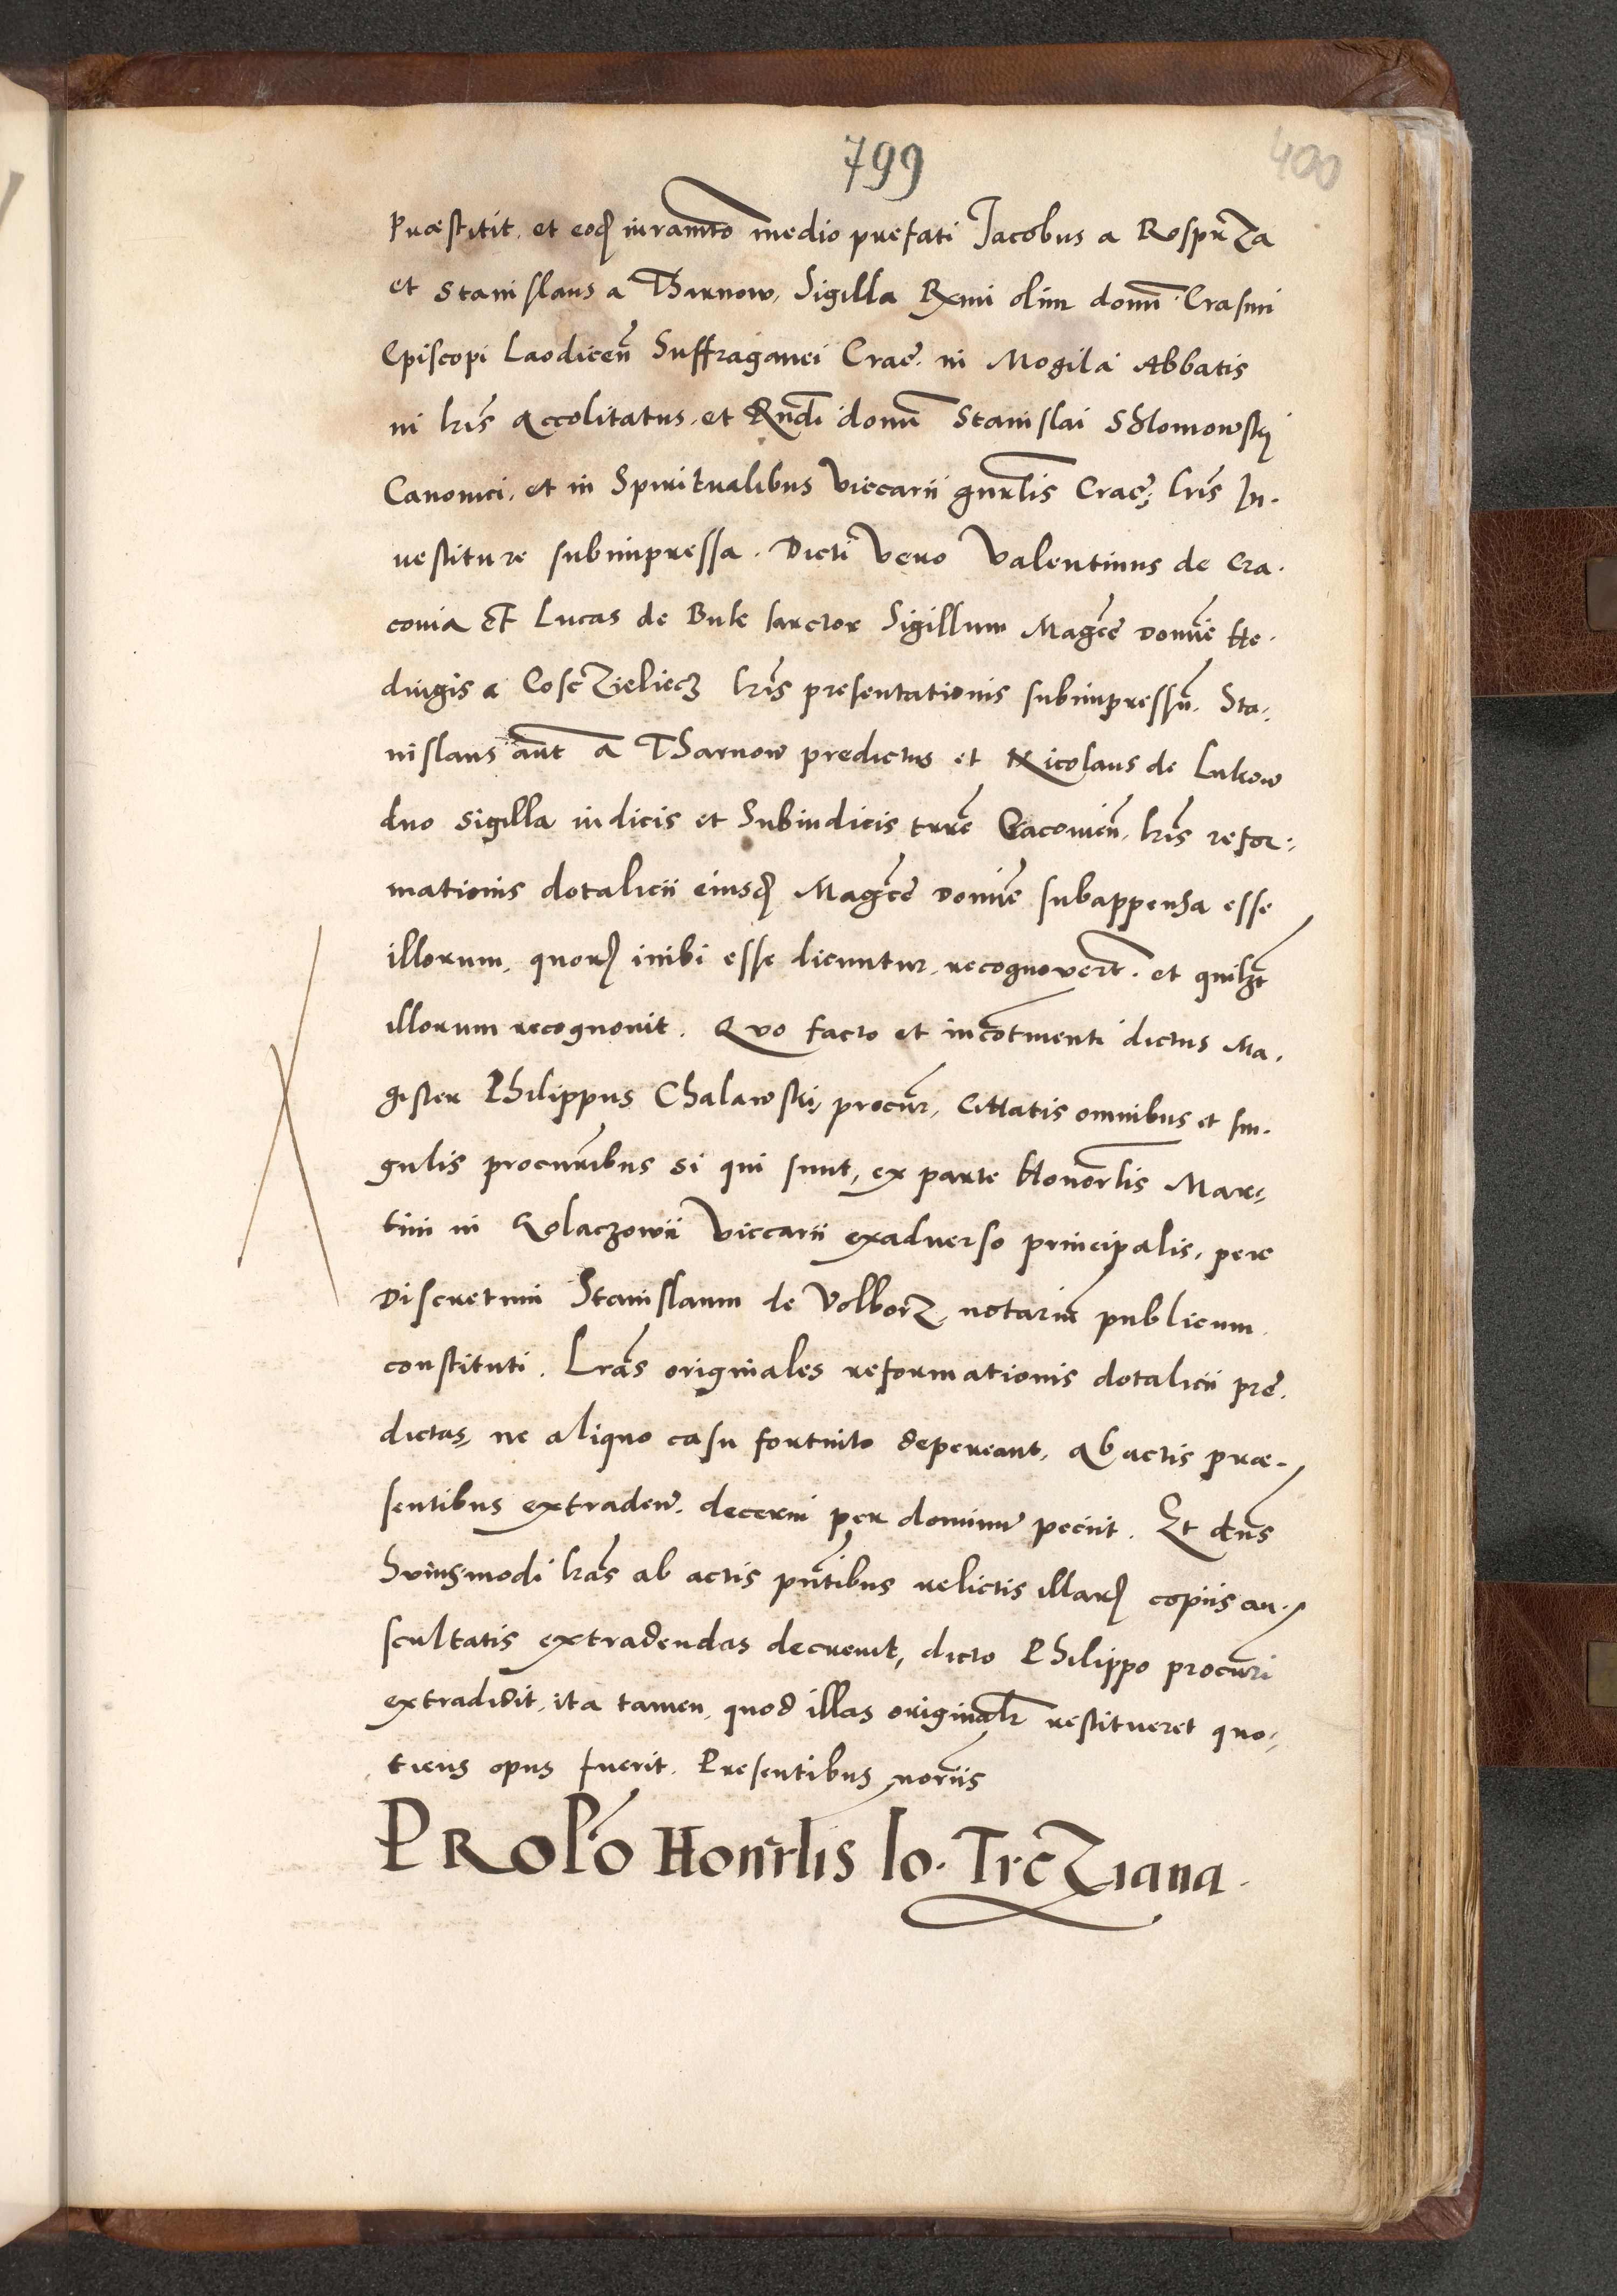 799
400
Præstitit. et eodẽ iuramẽto medio prefati Jacobus a RosprZa
et Stanislaus a Tharnow, Sigilla Rxmi olim domi Erasmi
Episcopi Laodiceñ Suffraganei Crac. in Mogila Abbatis
in lris Accolitatus, et Rndi domi Stanislai Shlomowskj
Canonici, et in Spiritualibus Viccarii gnrlis Crac: lris In-
vestiture subimpressa. Dicti Vero Valentinus de Cra-
covia Et Lucas de Buk sartor Sigillum Magce domine He-
duigis a CoscZieliecz lris presentationis subimpressũ. Sta-
nislaus aũt a Tharnow predictus et Nicolaus de Lukow
duo sigilla iudicis et Subiudicis terre Cracovieñ, lris refor-
mationis dotalicii eiusdẽ Magce domine subappensa esse
illorum, quorũ inibi esse dicuntur, recognoverũt. et quilzt
illorum recognouit. Quo facto et incontinenti dictus Ma-
gister Philippus Chalawski, procur, Cittatis omnibus et sin-
gulis procuribus si qui sunt, ex parte Honorlis Mar-
tini in Kolaczowii Viccarii exaduerso principalis, per
discretum Stanislaum de VolborZ, notariũ publicum
constituti. Lras originales reformationis dotalicii pre-
dictas, ne aliquo casu fortuito depereant, ab actis præ-
sentibus extradeñ. decerni per dominũ peciit. Et dñs
huiusmodi lras ab actis pñtibus relictis illarũ copiis au-
scultatis extradendas decreuit, dicto Philippo procuri
extradidit, ita tamen, quod illas originalr restitueret quo-
tiens opus fuerit. Presentibus noriis
PRO Po Honrlis Io. TrcZiana.